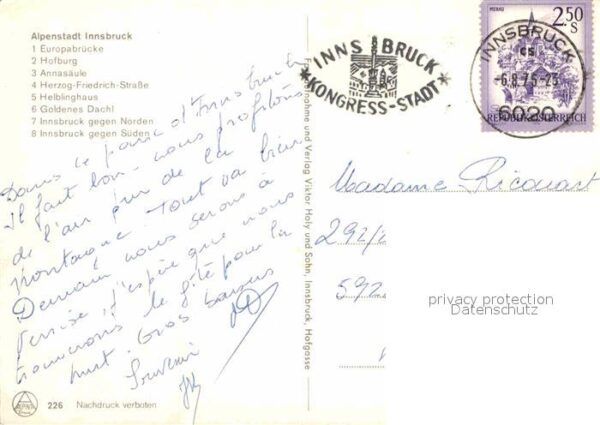 Alpenstadt Innsbruck
1 Europabrücke
2 Hofburg
3 Annasäule
4 Herzog-Friedrich-Straße
5 Helblinghaus
6 Goldenes Dachl
7 Innsbruck gegen Norden
8 Innsbruck gegen Süden
Dans le parc d'Innsbruck
Il fait bon - nous profitons
de l'air pur de la
montagne. Tout va bien
Demain nous serons à
Venise, j'espère que nous
trouverons le gîte pour la
nuit. Gros baisers
Souvenir
226 Nachdruck verboten
Aufnahme und Verlag Viktor Holy und Sohn, Innsbruck, Hofgasse
INNSBRUCK
KONGRESS-STADT
MURAU
2.50
S
REPUBLIK ÖSTERREICH
INNSBRUCK
-6.8.75-23
6020
Madame Ricouart
292/2
592
privacy protection
Datenschutz